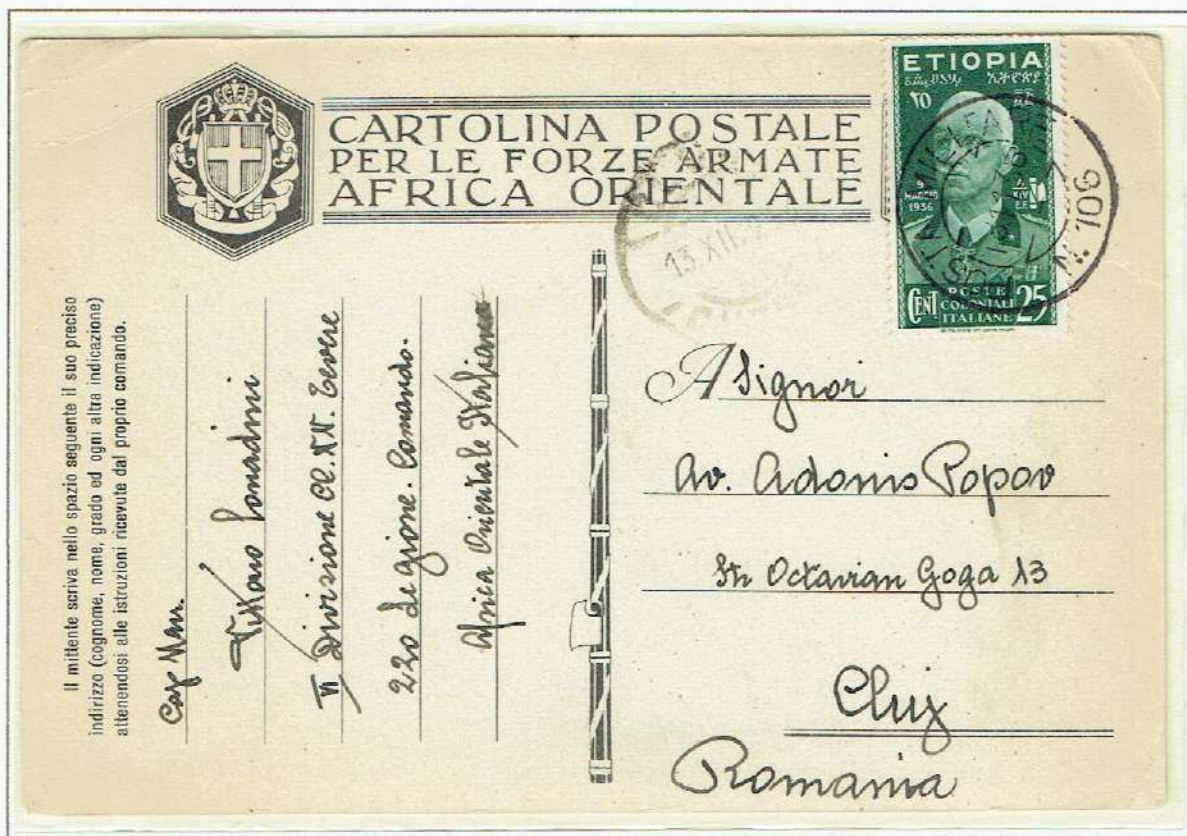 CARTOLINA POSTALE
PER LE FORZE ARMATE
AFRICA ORIENTALE
ETIOPIA
ኢትዮጵያ
٢٥
9
MAGGIO
1936
A.
XIV
E.F.
POSTE
CENT COLONIALI 25
ITALIANE
POSTA MILITARE
N. 106
13.XII.
Il mittente scriva nello spazio seguente il suo preciso
indirizzo (cognome, nome, grado ed ogni altra indicazione)
attenendosi alle istruzioni ricevute dal proprio comando.
Cap Man.
Divisione CC.NN. Tevere
220 Legione. Comando.
Africa Orientale Italiana
A Signor
Av. Adonis Popov
Str Octavian Goga 13
Cluj
Romania